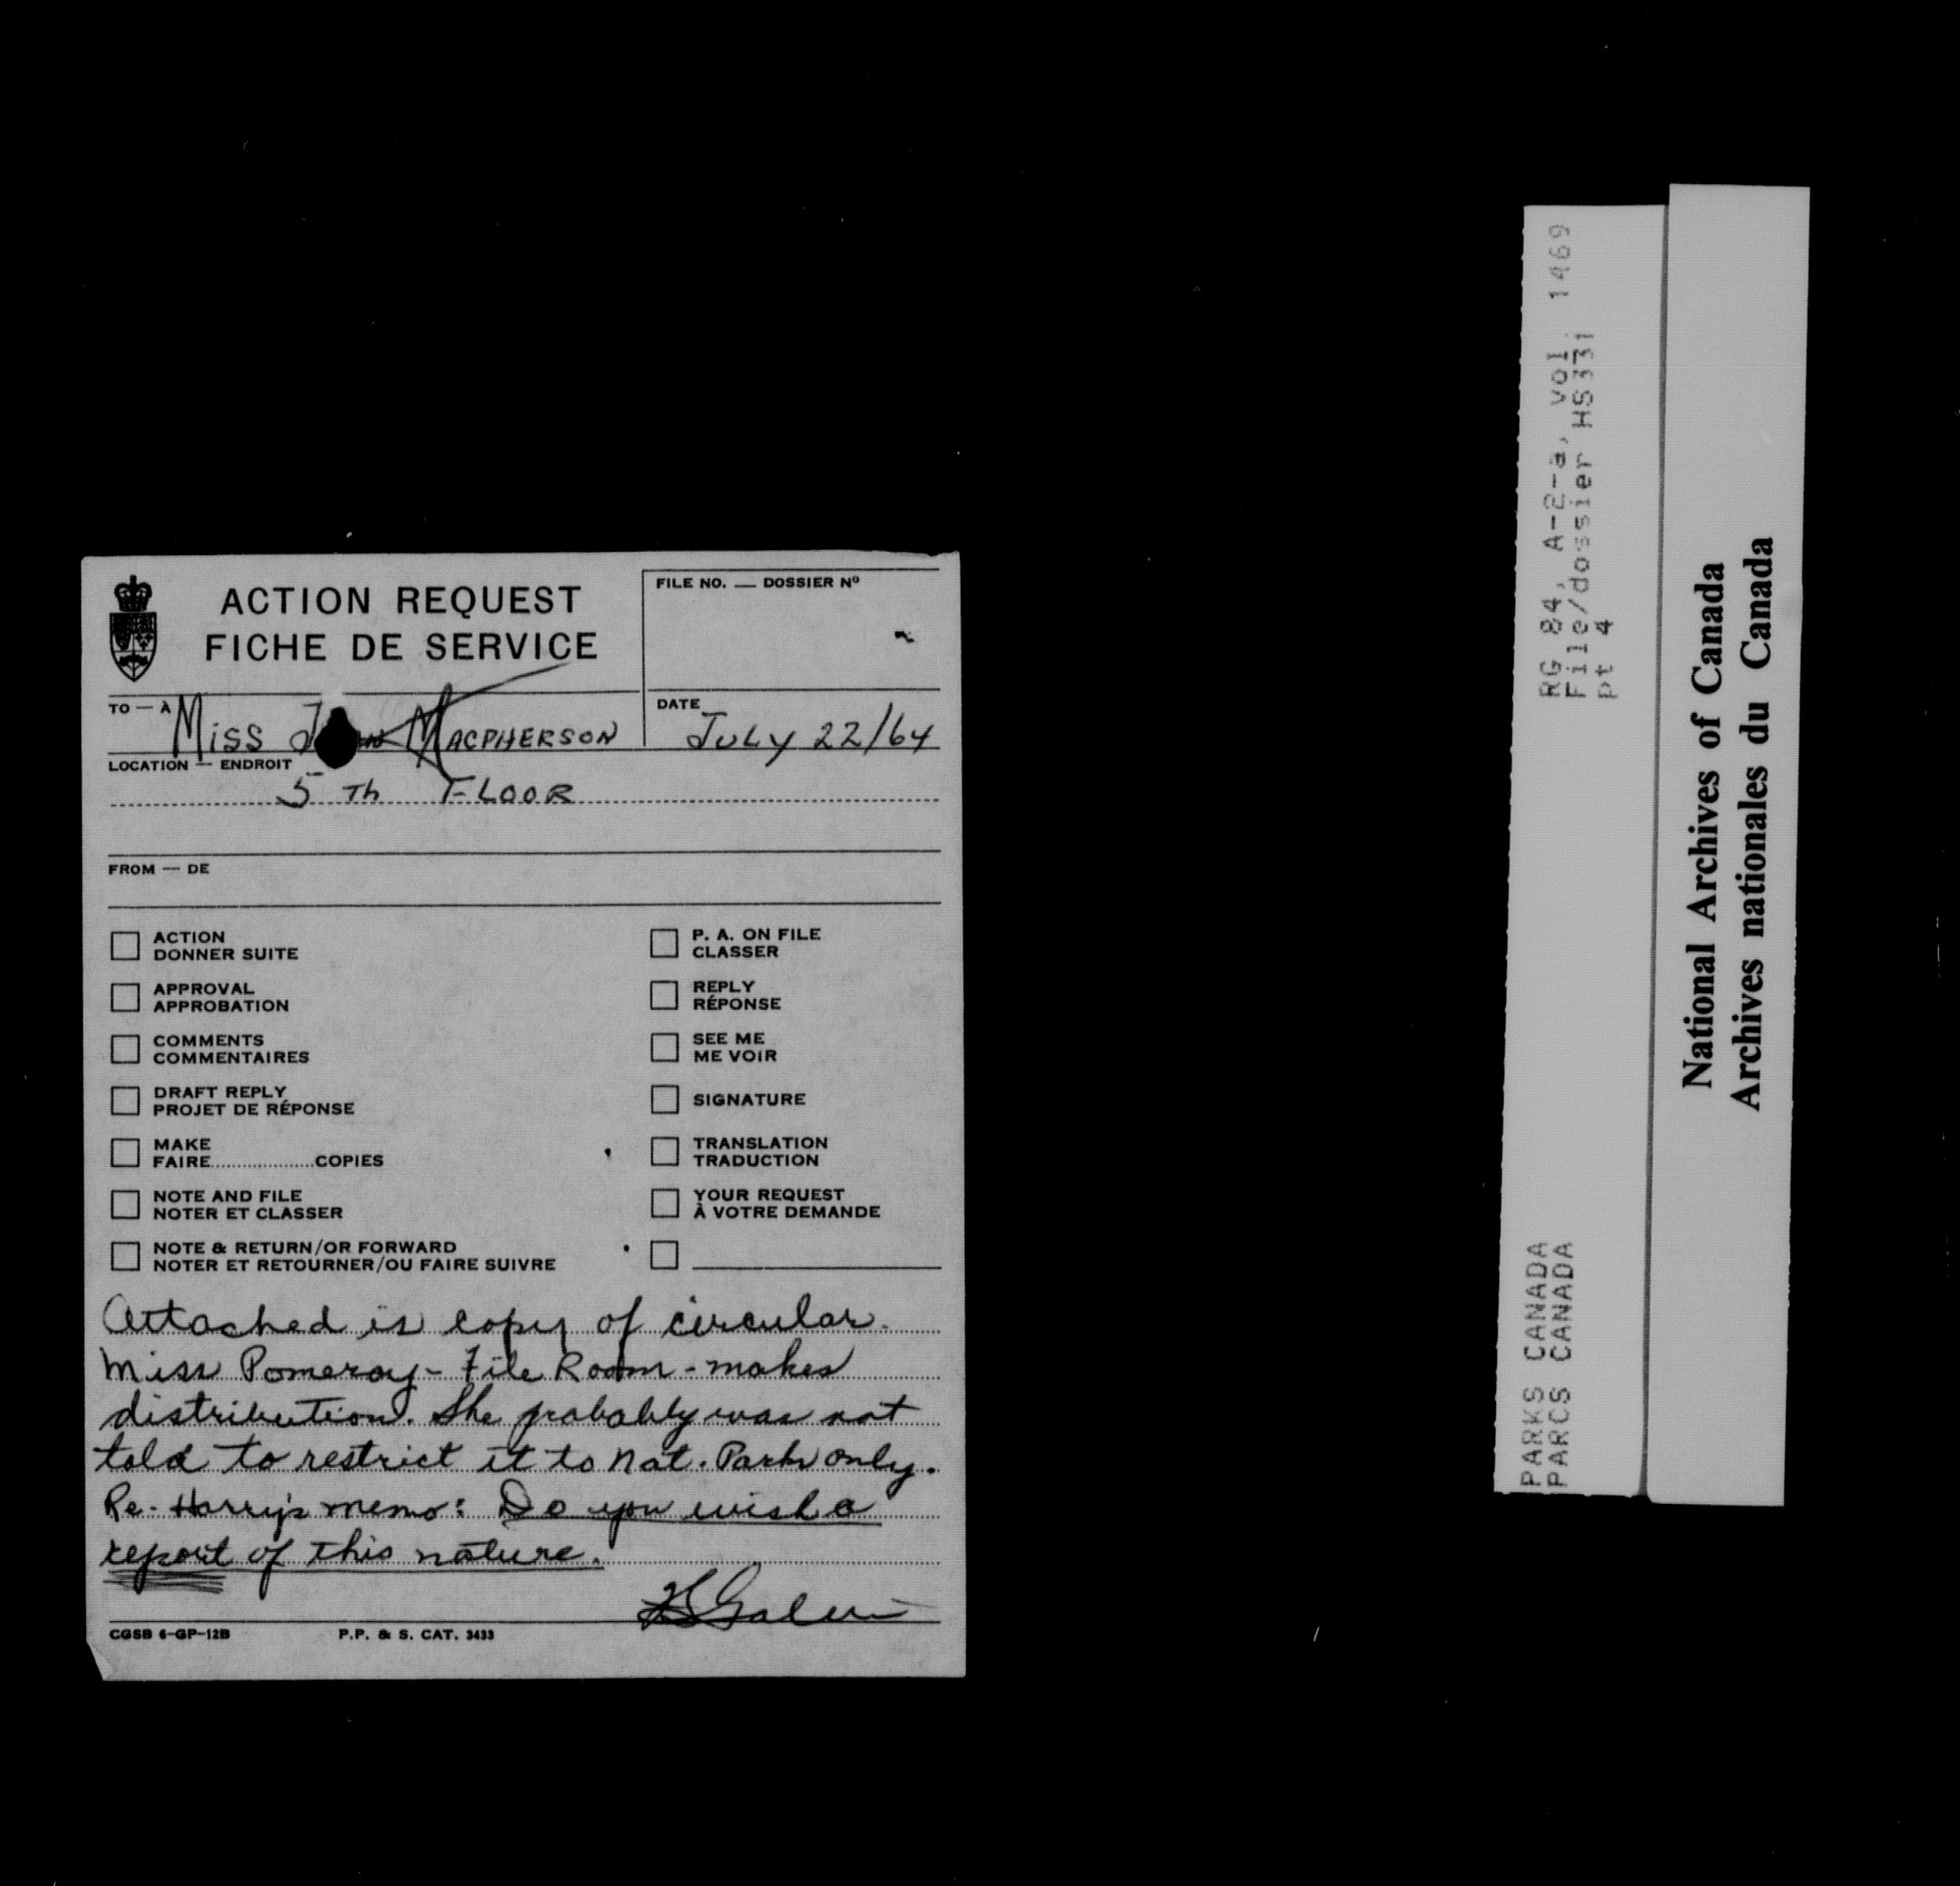 ACTION REQUEST
FICHE DE SERVICE
FILE NO. — DOSSIER Nº
TO — À
Miss MACPHERSON
DATE
JULY 22/64
LOCATION — ENDROIT
5 Th FLOOR
FROM — DE
ACTION
DONNER SUITE
APPROVAL
APPROBATION
COMMENTS
COMMENTAIRES
DRAFT REPLY
PROJET DE RÉPONSE
MAKE
FAIRE....................COPIES
NOTE AND FILE
NOTER ET CLASSER
NOTE & RETURN/OR FORWARD
NOTER ET RETOURNER/OU FAIRE SUIVRE
P. A. ON FILE
CLASSER
REPLY
RÉPONSE
SEE ME
ME VOIR
SIGNATURE
TRANSLATION
TRADUCTION
YOUR REQUEST
À VOTRE DEMANDE
Attached is copy of circular.
Miss Pomeroy - File Room - makes
distribution. She probably was not
told to restrict it to Nat. Parks only.
Re- Harry's memo: Do you wish a
report of this nature.
CGSB 6-GP-12B
P.P. & S. CAT. 3433
RG 84, A-2-a, vol. 1469
File/dossier HS331
pt 4
PARKS CANADA
PARCS CANADA
National Archives of Canada
Archives nationales du Canada